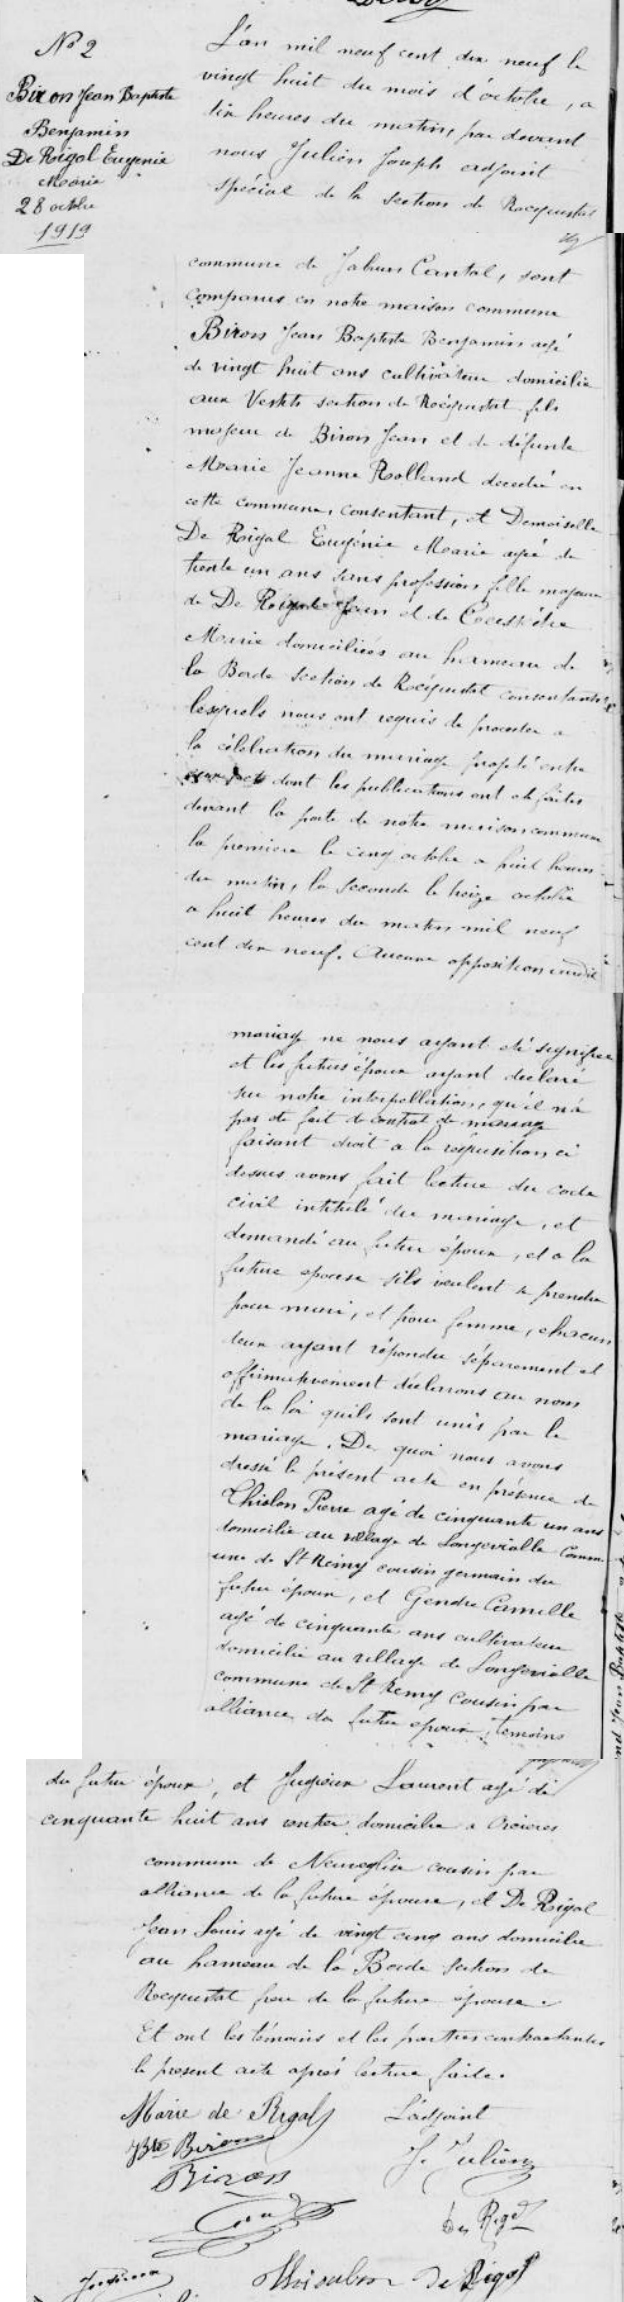 No 2
Biron Jean Baptiste
Benjamin
De Rigal Eugenie
Marie
28 octobre
1919
L'an mil neuf cent dix neuf le
vingt huit du mois d'octobre, a
dix heures du matin, par devant
nous Julien Joseph adjoint
spécial de la section de Recquistat
commune de Jabrun Cantal, sont
comparus en notre maison commune
Biron Jean Baptiste Benjamin agé
de vingt huit ans cultivateur domicilié
aux section de Recquistat fils
majeur de Biron Jean et de défunte
Marie Jeanne Rolland decedée en
cette commune, consentant, et Demoiselle
De Rigal Eugénie Marie agée de
trente un ans sans profession fille majeure
de De Rigal Jean et de
Marie domiciliés au hameau de
la Borde section de Recquistat consentants
lesquels nous ont requis de proceder a
la célébration du mariage projeté entre
eux et dont les publications ont été faites
devant la porte de notre maison commune
la premiere le cinq octobre a huit heures
du matin, la seconde le treize octobre
a huit heures du matin mil neuf
cent dix neuf. Aucune opposition audit
mariage ne nous ayant été signifiée
et les futurs époux ayant declaré
sur notre interpellation, qu'il n'a
pas été fait de contrat de mariage
faisant droit a la réquisition ci
dessus avons fait lecture du code
civil intitulé du mariage, et
demandé au futur époux, et a la
future epouse s'ils veulent se prendre
pour mari, et pour femme, chacun
deux ayant répondu séparement et
affirmativement déclarons au nom
de la loi quils sont unis par le
mariage. De quoi nous avons
dressé le présent acte en présence de
Pierre agé de cinquante un ans
domicilié au village de Longevialle Comm
une de St Remy cousin germain du
futur époux, et Gendre Camille
agé de cinquante ans cultivateur
domicilié au village de Longevialle
commune de St Remy Cousin par
alliance du futur epoux, temoins
du futur époux, et Laurent agé de
cinquante huit ans rentier domicilié a Orcieres
commune de Neuveglise cousin par
alliance de la future épouse, et De Rigal
Jean Louis agé de vingt cinq ans domicilié
au hameau de la Borde section de
Recquistat frere de la future épouse.
Et ont les témoins et les parties contractantes
le present acte après lecture faite.
Marie de Rigal L'adjoint
Bte Biron J. Julien
Biron
de Rigal